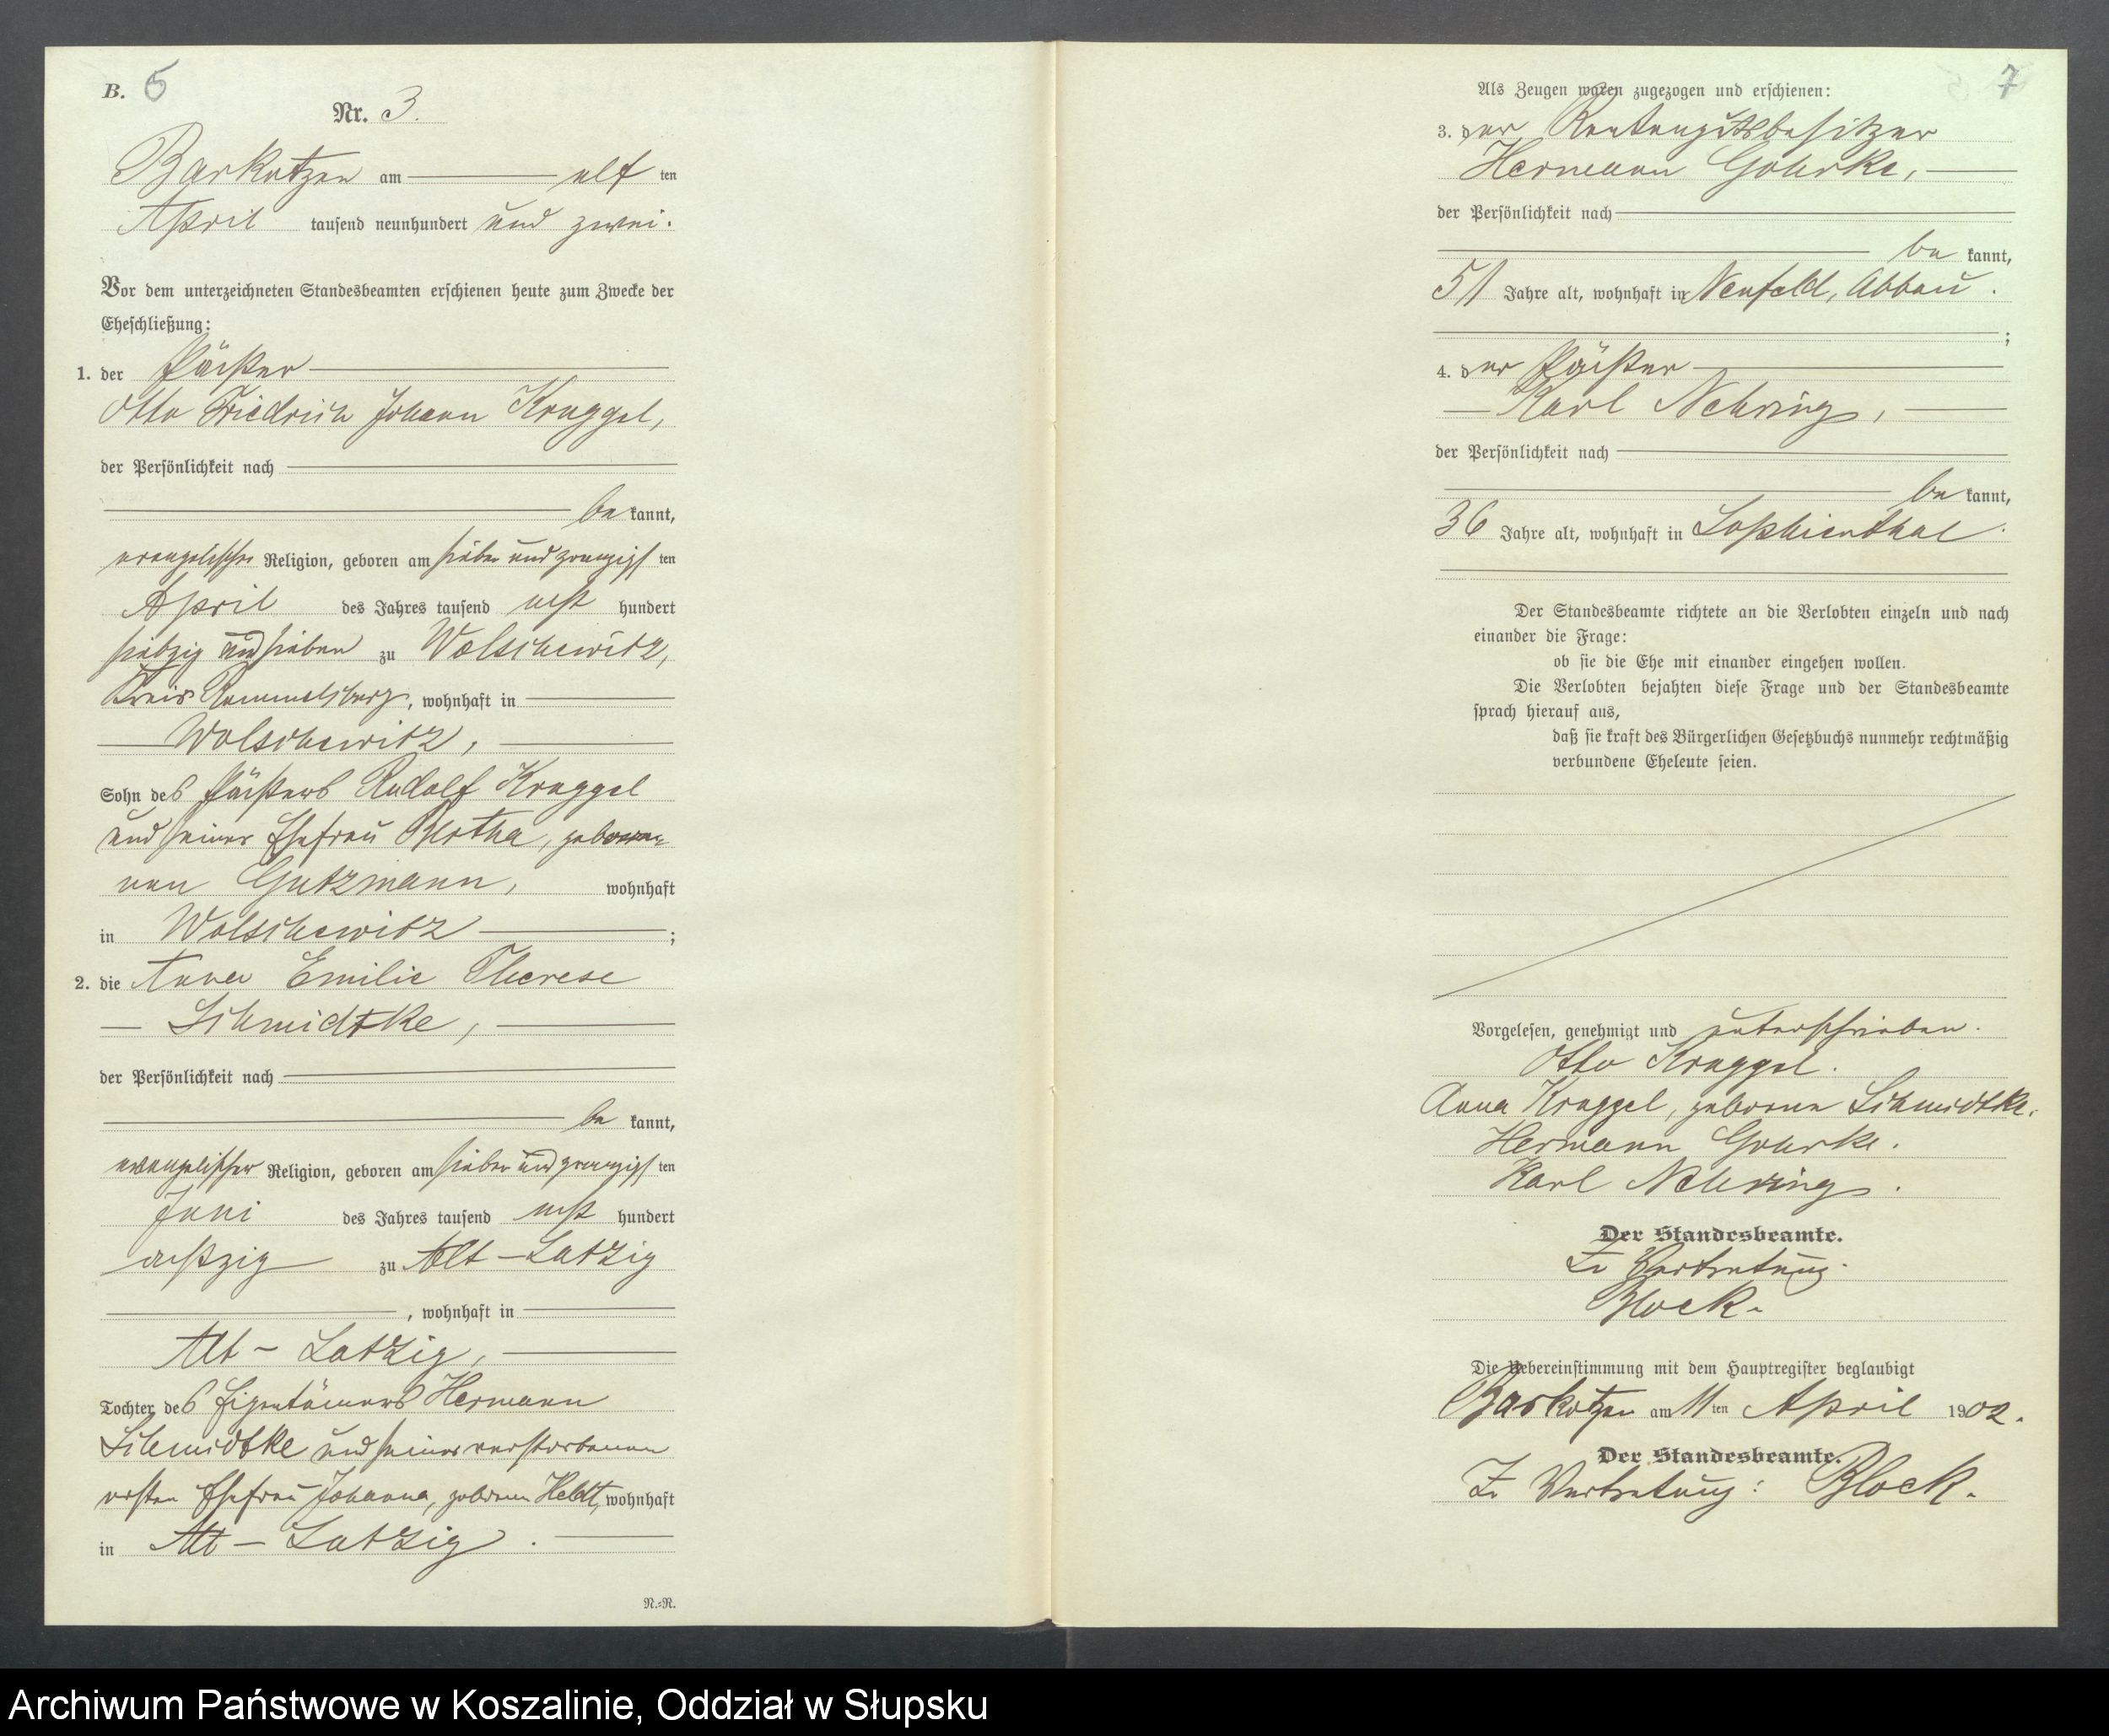 B. 6
Nr. 3.
Barkotzen am elf ten
April tausend neunhundert und zwei.
Vor dem unterzeichneten Standesbeamten erschienen heute zum Zwecke der
Eheschließung:
1. der Pächter
Otto Friedrich Johann Kruggel,
der Persönlichkeit nach
be kannt,
evangelischer Religion, geboren am sieben und zwanzigs ten
April des Jahres tausend acht hundert
siebzig und sieben zu Wolschewitz,
Kreis Rummelsburg, wohnhaft in
Wolschewitz,
Sohn des Pächters Rudolf Kruggel
und seiner Ehefrau Bertha, gebore-
nen Gutzmann, wohnhaft
in Wolschewitz ;
2. die Anna Emilie Therese
Schmidtke,
der Persönlichkeit nach
be kannt,
evangelischer Religion, geboren am sieben und zwanzigs ten
Juni des Jahres tausend acht hundert
achtzig zu Alt-Latzig
, wohnhaft in
Alt-Latzig,
Tochter des Eigentümers Hermann
Schmidtke und seiner verstorbenen
ersten Ehefrau Johanna, geborenen Heldt, wohnhaft
in Alt-Latzig.
N.=R.
7
Als Zeugen waren zugezogen und erschienen:
3. der Rentengutsbesitzer
Hermann Gohrke,
der Persönlichkeit nach
be kannt,
51 Jahre alt, wohnhaft in Neufeld, Abbau.
;
4. der Pächter
Karl Nehring,
der Persönlichkeit nach
be kannt,
36 Jahre alt, wohnhaft in Sophienthal.
Der Standesbeamte richtete an die Verlobten einzeln und nach
einander die Frage:
ob sie die Ehe mit einander eingehen wollen.
Die Verlobten bejahten diese Frage und der Standesbeamte
sprach hierauf aus,
daß sie kraft des Bürgerlichen Gesetzbuchs nunmehr rechtmäßig
verbundene Eheleute seien.
Vorgelesen, genehmigt und unterschrieben.
Otto Kruggel.
Anna Kruggel, geborene Schmidtke.
Hermann Gohrke.
Karl Nehring.
Der Standesbeamte.
In Vertretung.
Block.
Die Uebereinstimmung mit dem Hauptregister beglaubigt
Barkotzen am 11 ten April 1902.
Der Standesbeamte.
In Vertretung: Block.
Archiwum Państwowe w Koszalinie, Oddział w Słupsku